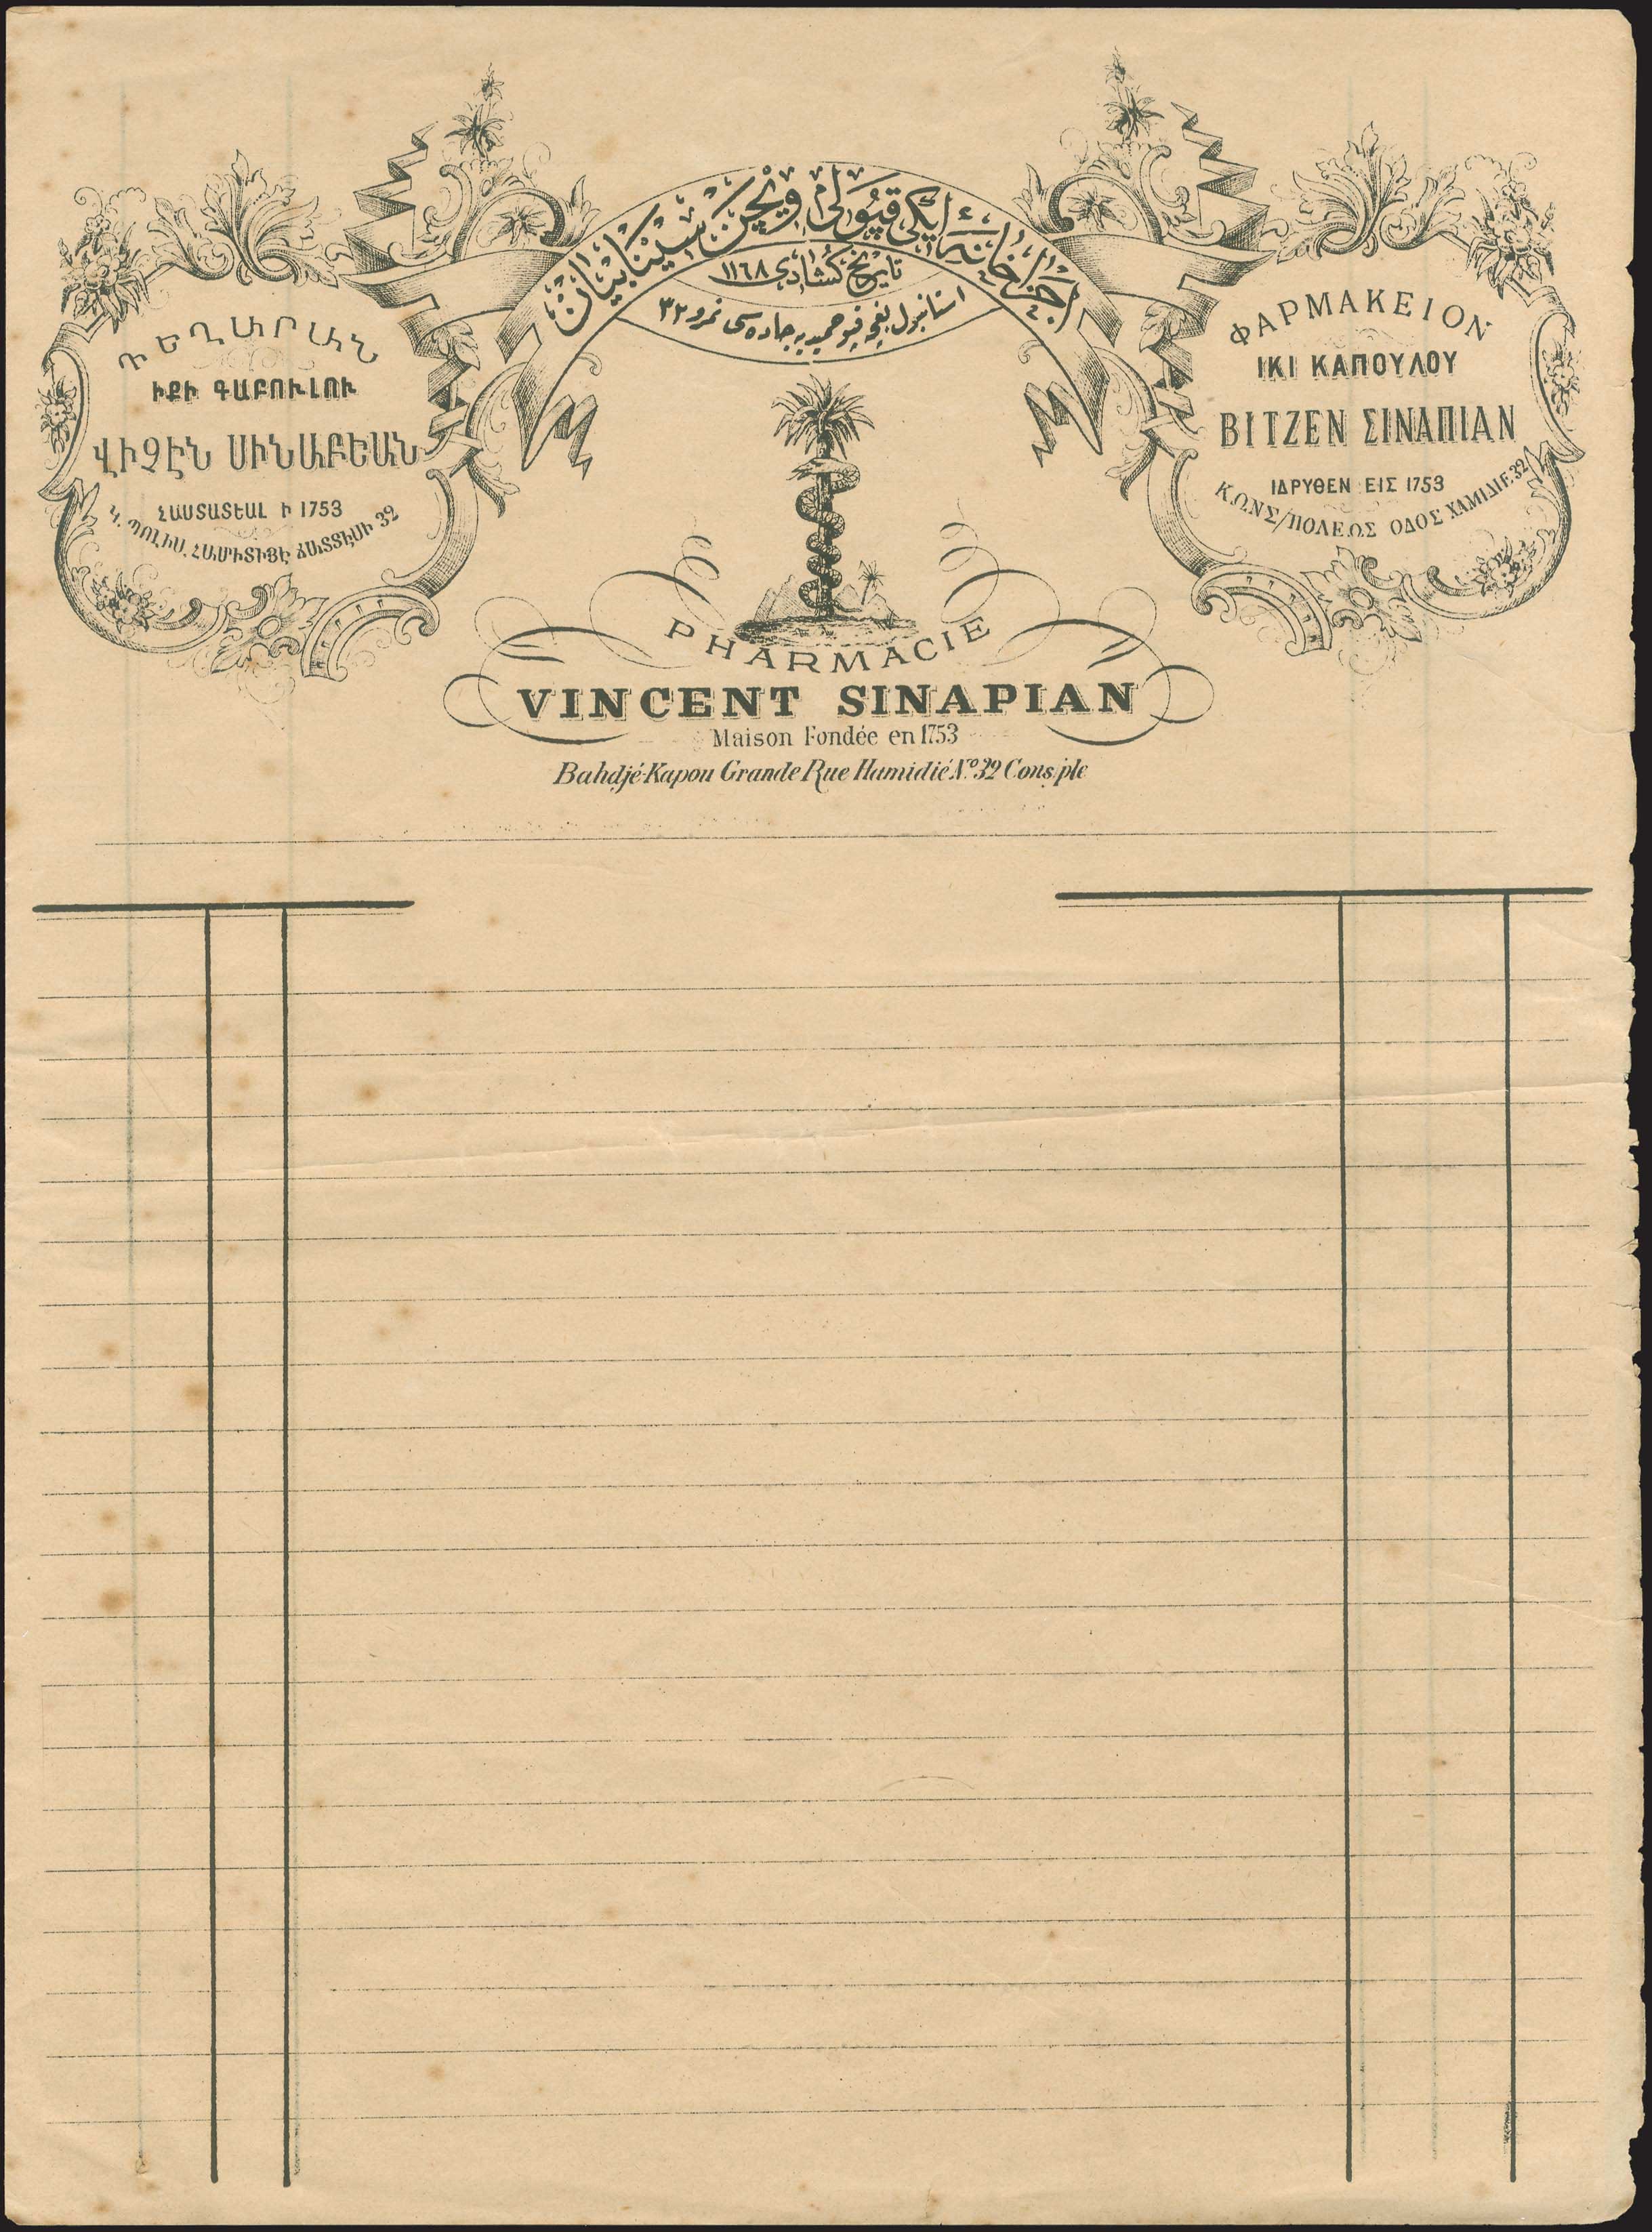 اجزاخانه ایكی قپولی ویچن سینابیان
تاریخ كشادی ١١٦٨
استانبول بغچه قپو حمیدیه جاده سی نمرو ٣٢
ԴԵՂԱՐԱՆ
ԻՔԻ ԳԱԲՈՒԼՈՒ
ՎԻՉԷՆ ՍԻՆԱԲԵԱՆ
ՀԱՍՏԱՏԵԱԼ Ի 1753
Կ. ՊՈԼԻՍ. ՀԱՄԻՏԻՅԷ ՃԱՏՏԷՍԻ 32
ΦΑΡΜΑΚΕΙΟΝ
ΙΚΙ ΚΑΠΟΥΛΟΥ
ΒΙΤΖΕΝ ΣΙΝΑΠΙΑΝ
ΙΔΡΥΘΕΝ ΕΙΣ 1753
Κ.ΩΝΣ/ΠΟΛΕΩΣ ΟΔΟΣ ΧΑΜΙΔΙΕ.32
PHARMACIE
VINCENT SINAPIAN
Maison Fondée en 1753
Bahdjé-Kapou Grande Rue Hamidié No. 32 Cons.ple